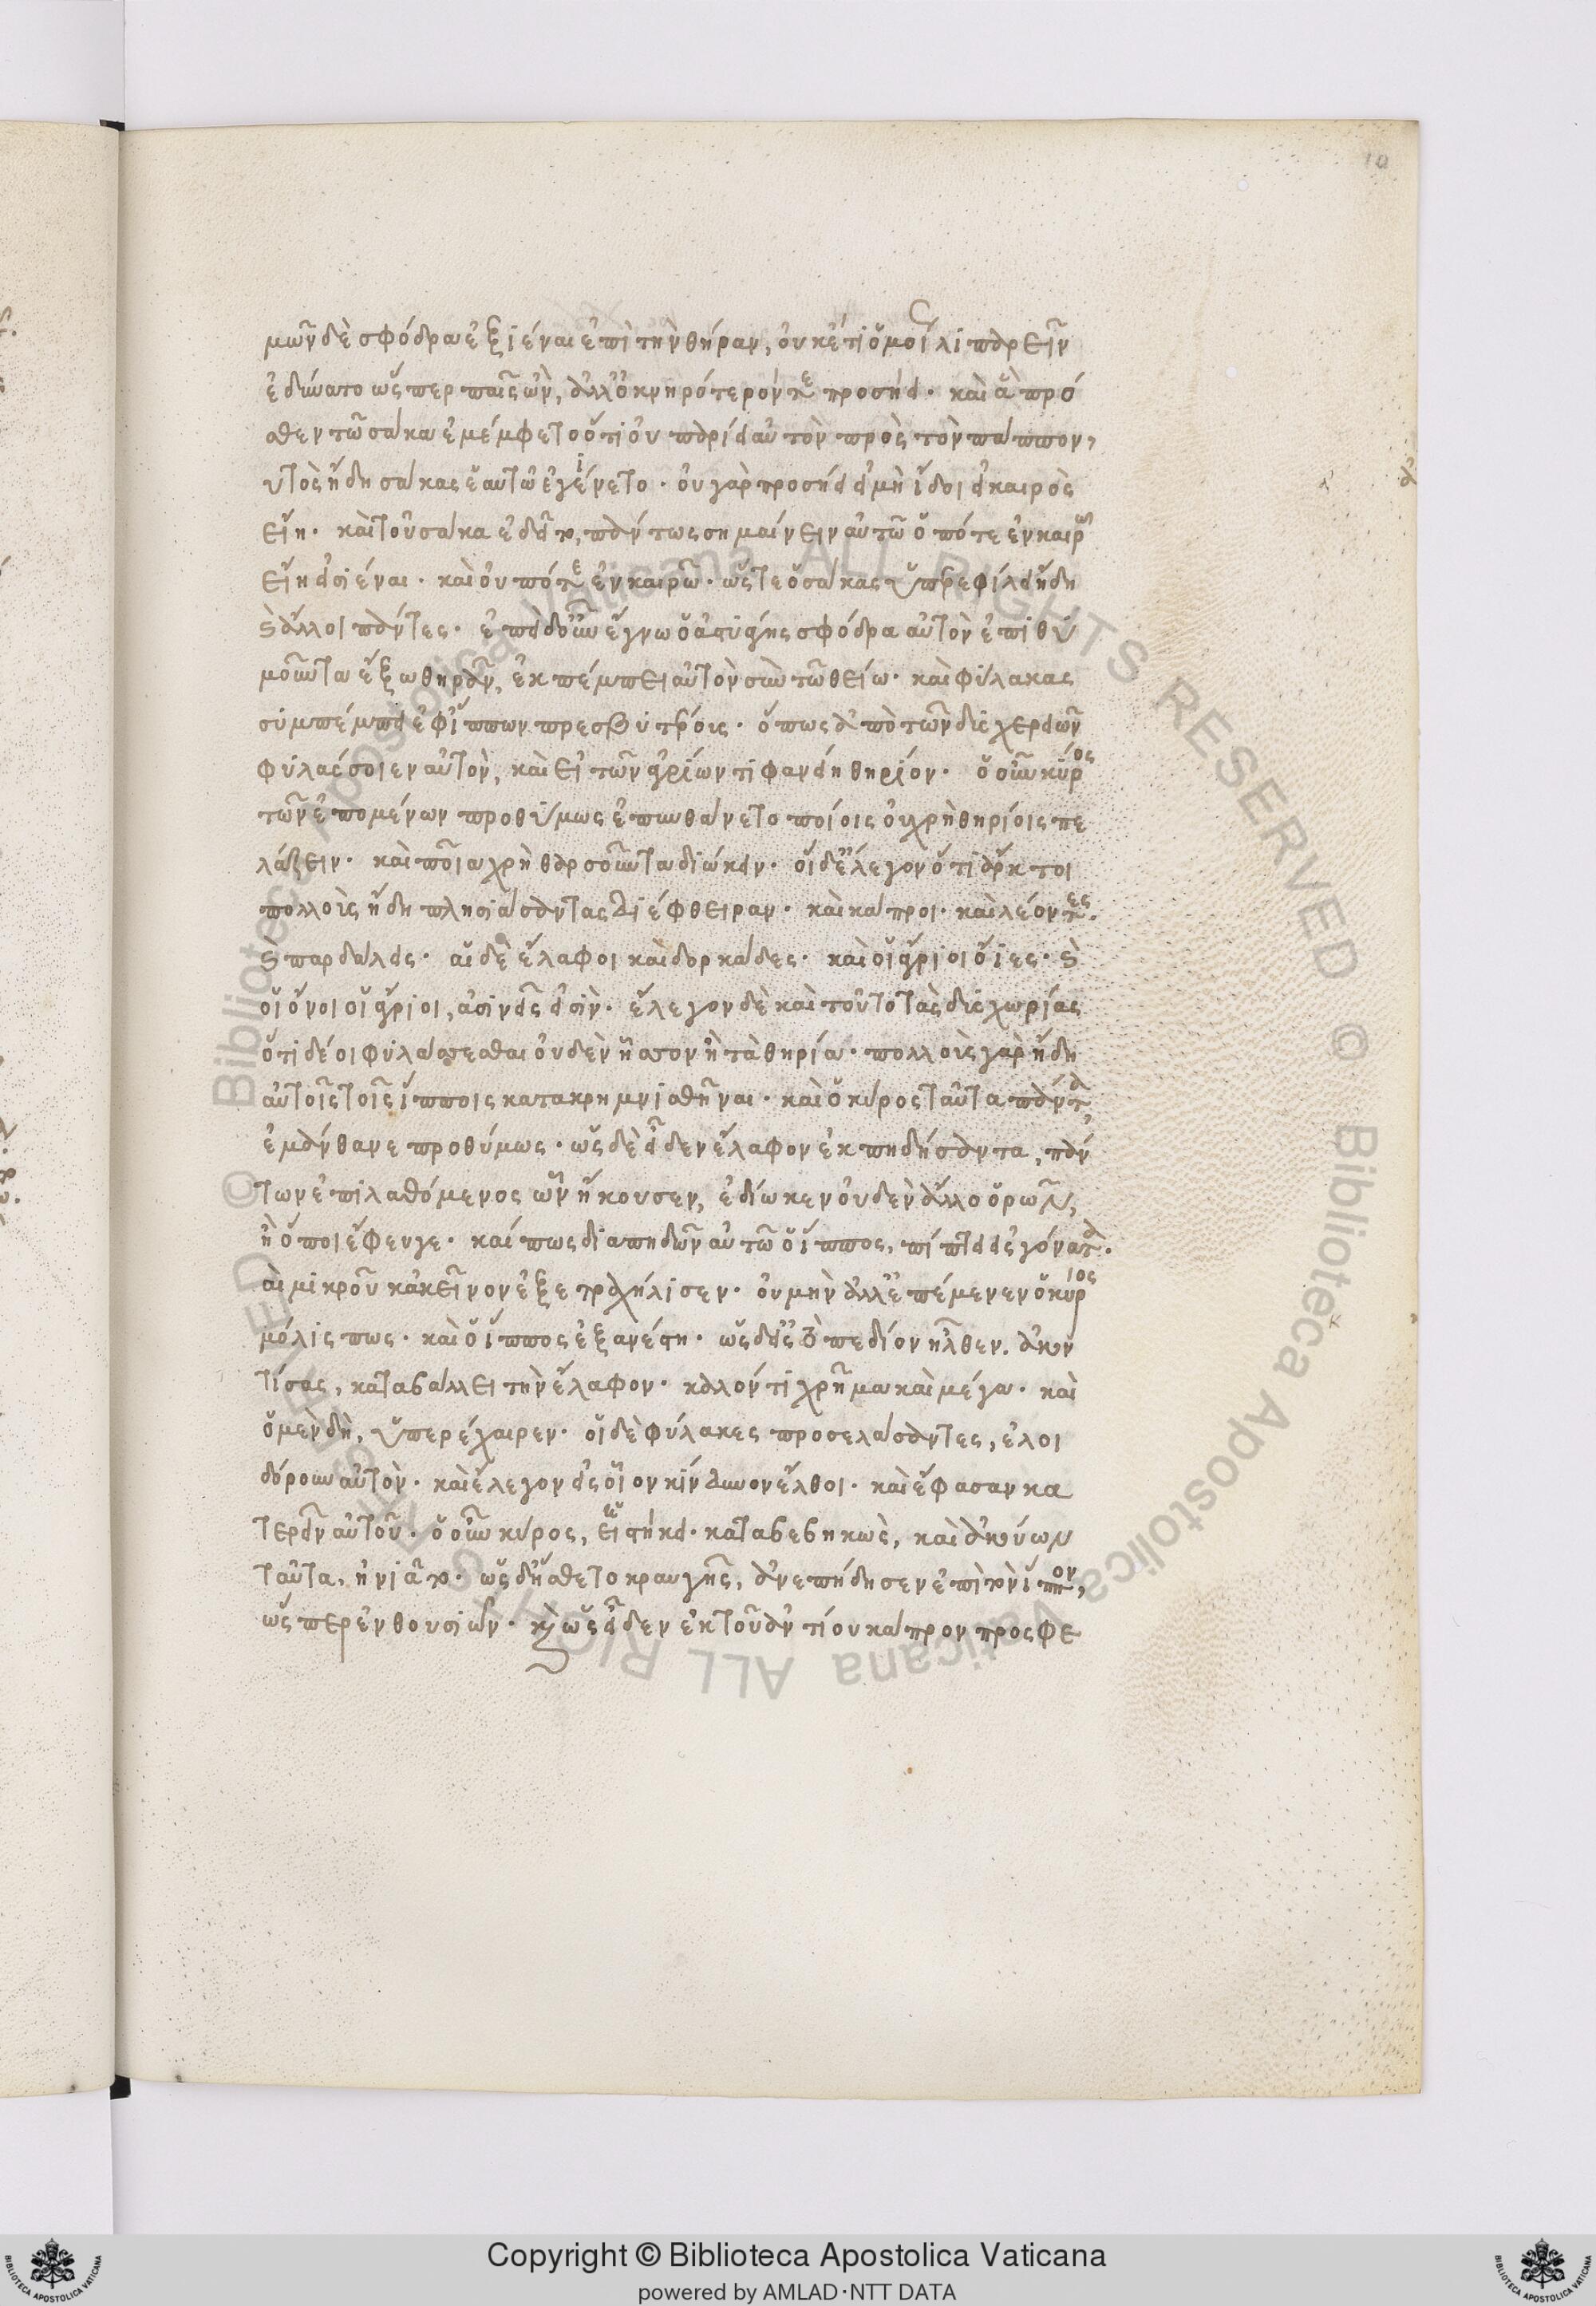 10
μῶν δὲ σφόδρα ἐξιέναι ἐπὶ τὴν θήραν, οὐκέτι ὁμοί λιπαρεῖν
ἐδύνατο ὥσπερ παῖς ὢν, ἀλλ' ὀκνηρότερόν τε προσήει. καὶ ἃ πρό
σθεν τῶ σάκα ἐμέμφετο ὅτι οὐ παρίει αὐτὸν πρὸς τὸν πάππον,
υτὸς ἤδη σάκας ἑαυτῶ ἐγίνετο. οὐ γὰρ προσήει εἰ μὴ ἴδοι εἰ καιρὸς
εἴη. καὶ τοῦ σάκα ἐδεῖτο, πάντως σημαίνειν αὐτῶ ὁπότε ἐν καιρῶ
εἴη εἰσιέναι. καὶ οὐπότε ἐν καιρῶ. ὥστε ὁ σάκας ὑπερεφίλει ἤδη
καὶ ἄλλοι πάντες. ἐπεὶ δ' οὖν ἔγνω ὁ ἀστυάγης σφόδρα αὐτὸν ἐπιθυ
μοῦντα ἔξω θηρᾶν, ἐκπέμπει αὐτὸν σὺν τῶ θείω. καὶ φύλακας
συμπέμπει ἐφ' ἵππων πρεσβυτέροις. ὅπως ἀπὸ τῶν δυσχερειῶν
φυλάσσοιεν αὐτὸν, καὶ εἰ τῶν ἀγρίων τι φανείη θηρίον. ὁ οὖν κῦρος
τῶν ἑπομένων προθύμως ἐπυνθάνετο ποίοις οὐ χρὴ θηρίοις πε
λάζειν. καὶ ποῖα χρὴ θαρσοῦντα διώκειν. οἱ δ' ἔλεγον ὅτι ἄρκτοι
πολλοὺς ἤδη πλησιάσαντας διέφθειραν. καὶ κάπροι. καὶ λέοντες.
καὶ παρδάλεις. αἱ δὲ ἔλαφοι καὶ δορκάδες. καὶ οἱ ἄγριοι οἴιες. καὶ
οἱ ὄνοι οἱ ἄγριοι, ἀσινεῖς εἰσὶν. ἔλεγον δὲ καὶ τοῦτο τὰς δυσχωρίας
ὅτι δέοι φυλάττεσθαι οὐδὲν ἧττον ἢ τὰ θηρία. πολλοὺς γὰρ ἤδη
αὐτοῖς τοῖς ἵπποις κατακρημνισθῆναι. καὶ ὁ κῦρος ταῦτα πάντα,
ἐμάνθανε προθύμως. ὡς δὲ εἶδεν ἔλαφον ἐκπηδήσαντα, πάν
των ἐπιλαθόμενος ὧν ἤκουσεν, ἐδίωκεν οὐδὲν ἄλλο ὁρῶν,
ἢ ὅποι ἔφευγε. καί πως διαπηδῶν αὐτῶ ὁ ἵππος, πίπτει εἰς γόνατα.
αὶ μικροῦ κἀκεῖνον ἐξετραχήλισεν. οὐ μὴν ἀλλ' ἐπέμενεν ὁ κῦρος
μόλις πως. καὶ ὁ ἵππος ἐξανέστη. ὡς δ' εἰς τὸ πεδίον ἦλθεν. ἀκον
τίσας, καταβάλλει τὴν ἔλαφον. καλόν τι χρῆμα καὶ μέγα. καὶ
ὁ μὲν δὴ, ὑπερέχαιρεν. οἱ δὲ φύλακες προσελάσαντες, ἐλοι
δόρουν αὐτὸν. καὶ ἔλεγον εἰς οἷον κίνδυνον ἔλθοι. καὶ ἔφασαν κα
τερεῖν αὐτοῦ. ὁ οὖν κῦρος, εἱστήκει. καταβεβηκὼς, καὶ ἀκούων
ταῦτα, ἠνιᾶτο. ὡς δ' ἤσθετο κραυγῆς, ἀνεπήδησεν ἐπὶ τὸν ἵππον,
ὥσπερ ἐνθουσιῶν. καὶ ὡς εἶδεν ἐκ τοῦ ἀντίου κάπρον προσφε
© Biblioteca Apostolica Vaticana ALL RIGHTS RESERVED
Copyright © Biblioteca Apostolica Vaticana
powered by AMLAD·NTT DATA